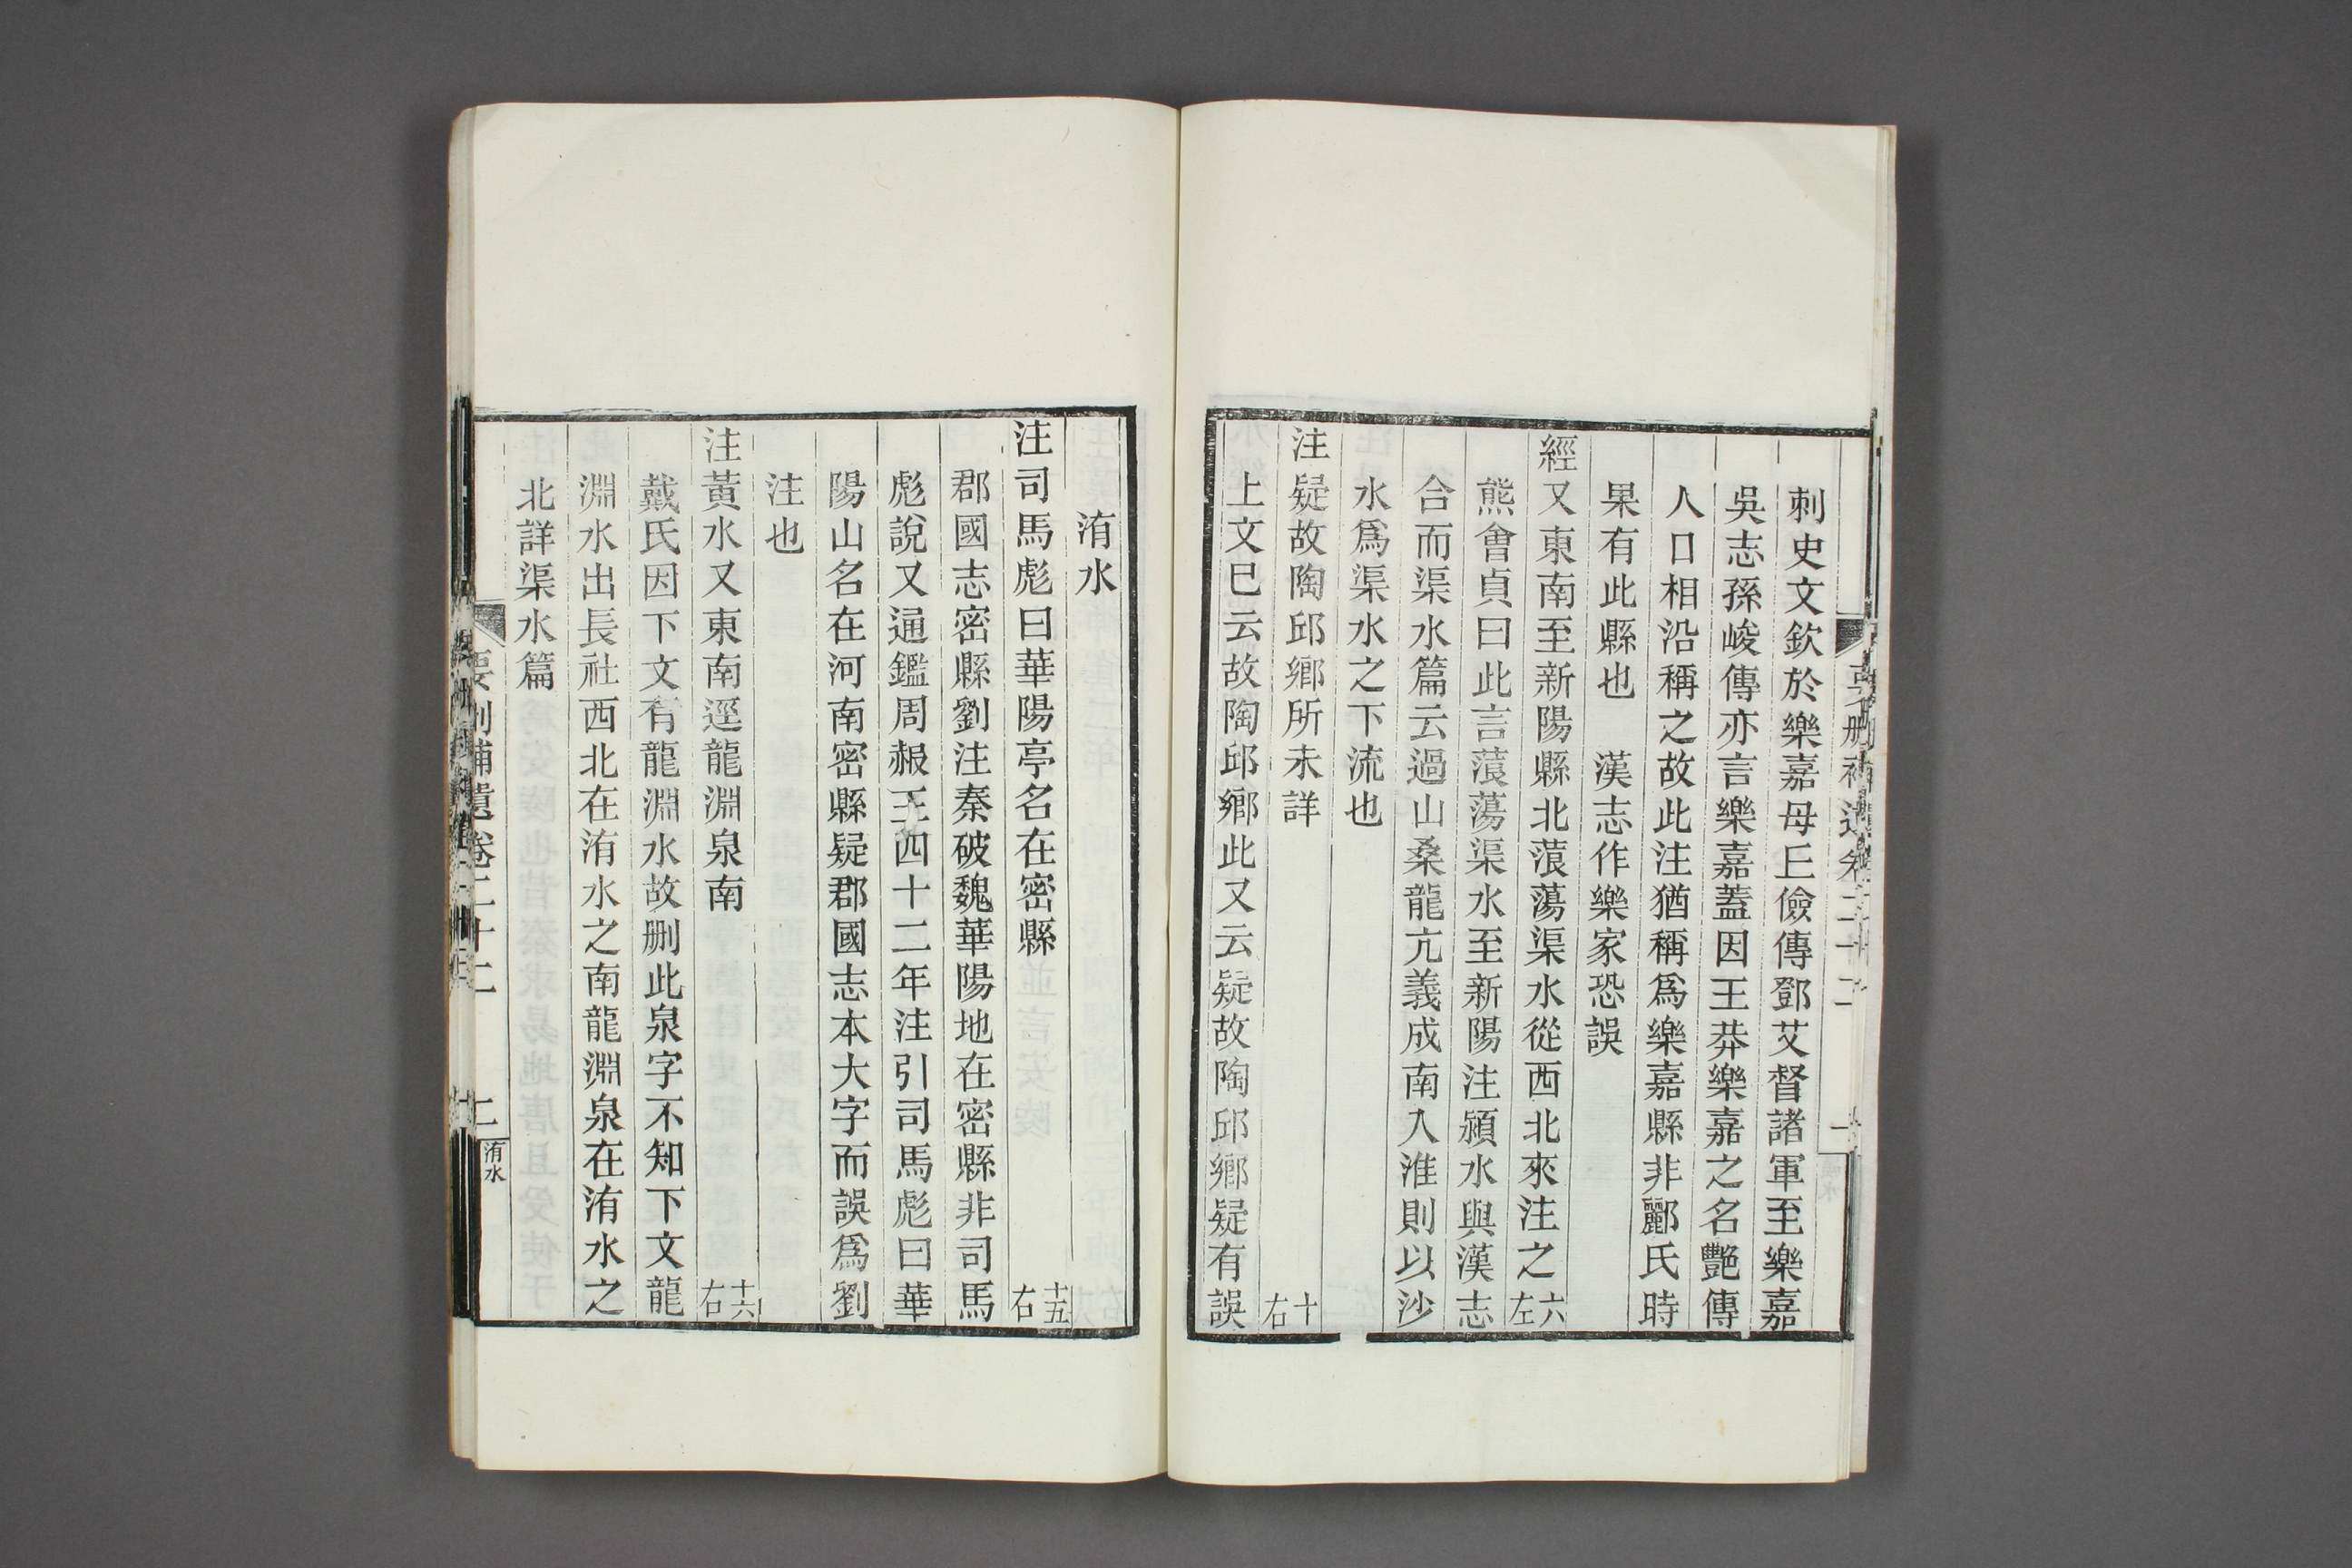 刺史文欽於樂嘉毋丘儉傳鄧艾督諸軍至樂嘉
吳志孫峻傳亦言樂嘉蓋因王莽樂嘉之名艷傳
人口相沿稱之故此注猶稱爲樂嘉縣非酈氏時
果有此縣也　漢志作樂家恐誤
經又東南至新陽縣北蒗蕩渠水從西北來注之六左
熊會貞曰此言蒗蕩渠水至新陽注潁水與漢志
合而渠水篇云過山桑龍亢義成南入淮則以沙
水爲渠水之下流也
注疑故陶邱鄉所未詳十右
上文已云故陶邱鄉此又云疑故陶邱鄉疑有誤
洧水
注司馬彪曰華陽亭名在密縣十五右
郡國志密縣劉注秦破魏華陽地在密縣非司馬
彪說又通鑑周赧王四十二年注引司馬彪曰華
陽山名在河南密縣疑郡國志本大字而誤爲劉
注也
注黃水又東南逕龍淵泉南十六右
戴氏因下文有龍淵水故刪此泉字不知下文龍
淵水出長社西北在洧水之南龍淵泉在洧水之
北詳渠水篇
要刪補遺卷二十二
二
洧水